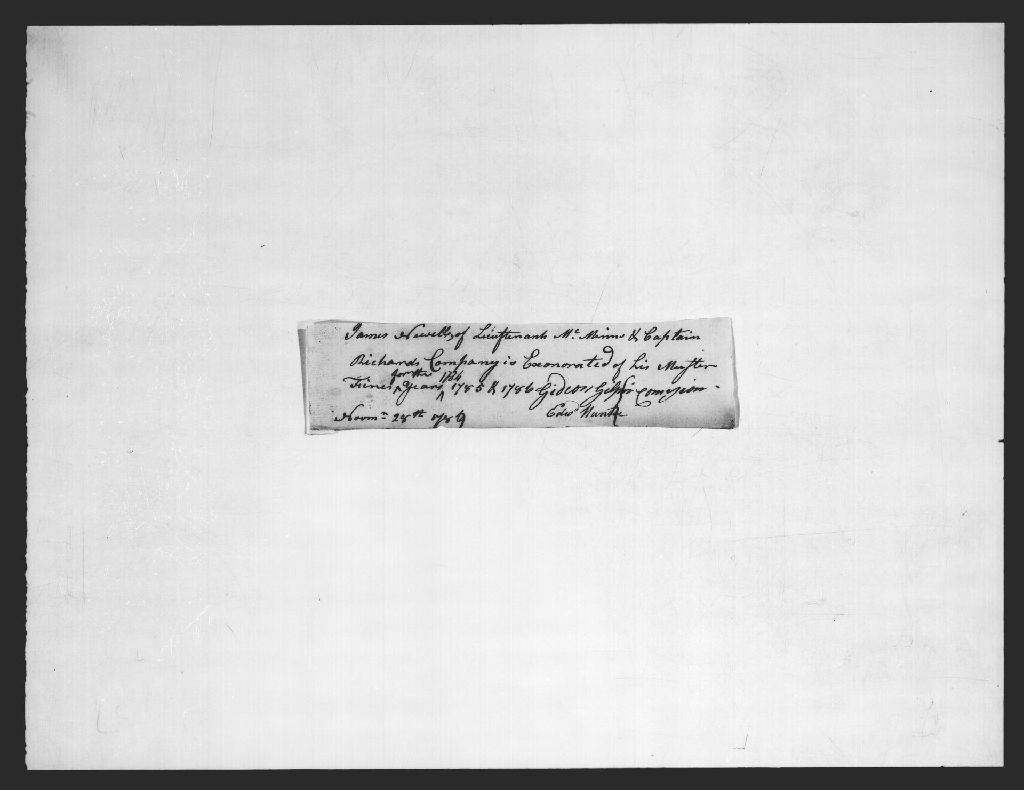 James Newell, of Lieuftenants Mc Manno & Captain
Richards Company is Exonorated of his Muster
Fines for the years 1784 1785 & 1786 Gideon Comision
Novm 28th 1789 Edwd